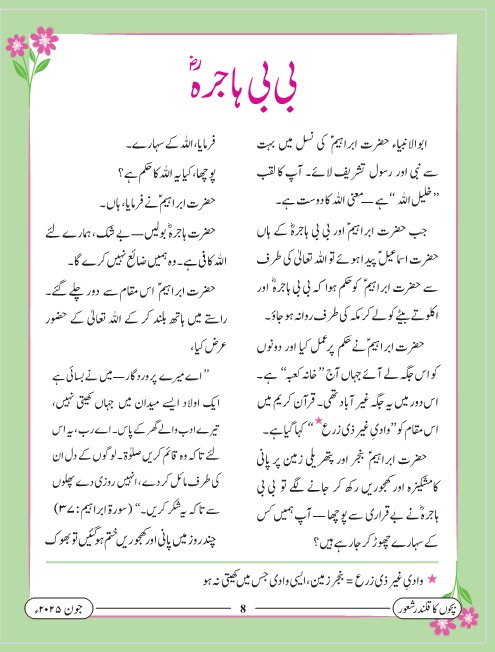 بی بی ہاجرہؓ
ابوالانبیاء حضرت ابراہیمؑ کی نسل میں بہت
سے نبی اور رسول تشریف لائے۔ آپ کا لقب
”خلیل اللہ“ ہے — معنی اللہ کا دوست ہے۔
جب حضرت ابراہیمؑ اور بی بی ہاجرہؓ کے ہاں
حضرت اسماعیلؑ پیدا ہوئے تو اللہ تعالیٰ کی طرف
سے حضرت ابراہیمؑ کو حکم ہوا کہ بی بی ہاجرہؓ اور
اکلوتے بیٹے کو لے کر مکہ کی طرف روانہ ہو جاؤ۔
حضرت ابراہیمؑ نے حکم پر عمل کیا اور دونوں
کو اس جگہ لے آئے جہاں آج ”خانہ کعبہ“ ہے۔
اس دور میں یہ جگہ غیر آباد تھی۔ قرآن کریم میں
اس مقام کو ”وادیِ غیر ذی زرع*“ کہا گیا ہے۔
حضرت ابراہیمؑ بنجر اور پتھریلی زمین پر پانی
کا مشکیزہ اور کھجوریں رکھ کر جانے لگے تو بی بی
ہاجرہؓ نے بے قراری سے پوچھا — آپ ہمیں کس
کے سہارے چھوڑ کر جا رہے ہیں؟
فرمایا، اللہ کے سہارے۔
پوچھا، کیا یہ اللہ کا حکم ہے؟
حضرت ابراہیمؑ نے فرمایا، ہاں۔
حضرت ہاجرہؓ بولیں — بے شک، ہمارے لئے
اللہ کافی ہے۔ وہ ہمیں ضائع نہیں کرے گا۔
حضرت ابراہیمؑ اس مقام سے دور چلے گئے۔
راستے میں ہاتھ بلند کر کے اللہ تعالیٰ کے حضور
عرض کیا،
”اے میرے پروردگار — میں نے بسائی ہے
ایک اولاد ایسے میدان میں جہاں کھیتی نہیں،
تیرے ادب والے گھر کے پاس۔ اے رب، یہ اس
لئے تاکہ وہ قائم کریں صلوٰۃ۔ لوگوں کے دل ان
کی طرف مائل کردے، انہیں روزی دے پھلوں
سے تاکہ یہ شکر کریں۔“ (سورۃ ابراہیم: ۳۷)
چند روز میں پانی اور کھجوریں ختم ہو گئیں تو بھوک
★ وادیِ غیر ذی زرع = بنجر زمین، ایسی وادی جس میں کھیتی نہ ہو
بچوں کا قلندر شعور
8
جون ۲۰۲۵ء